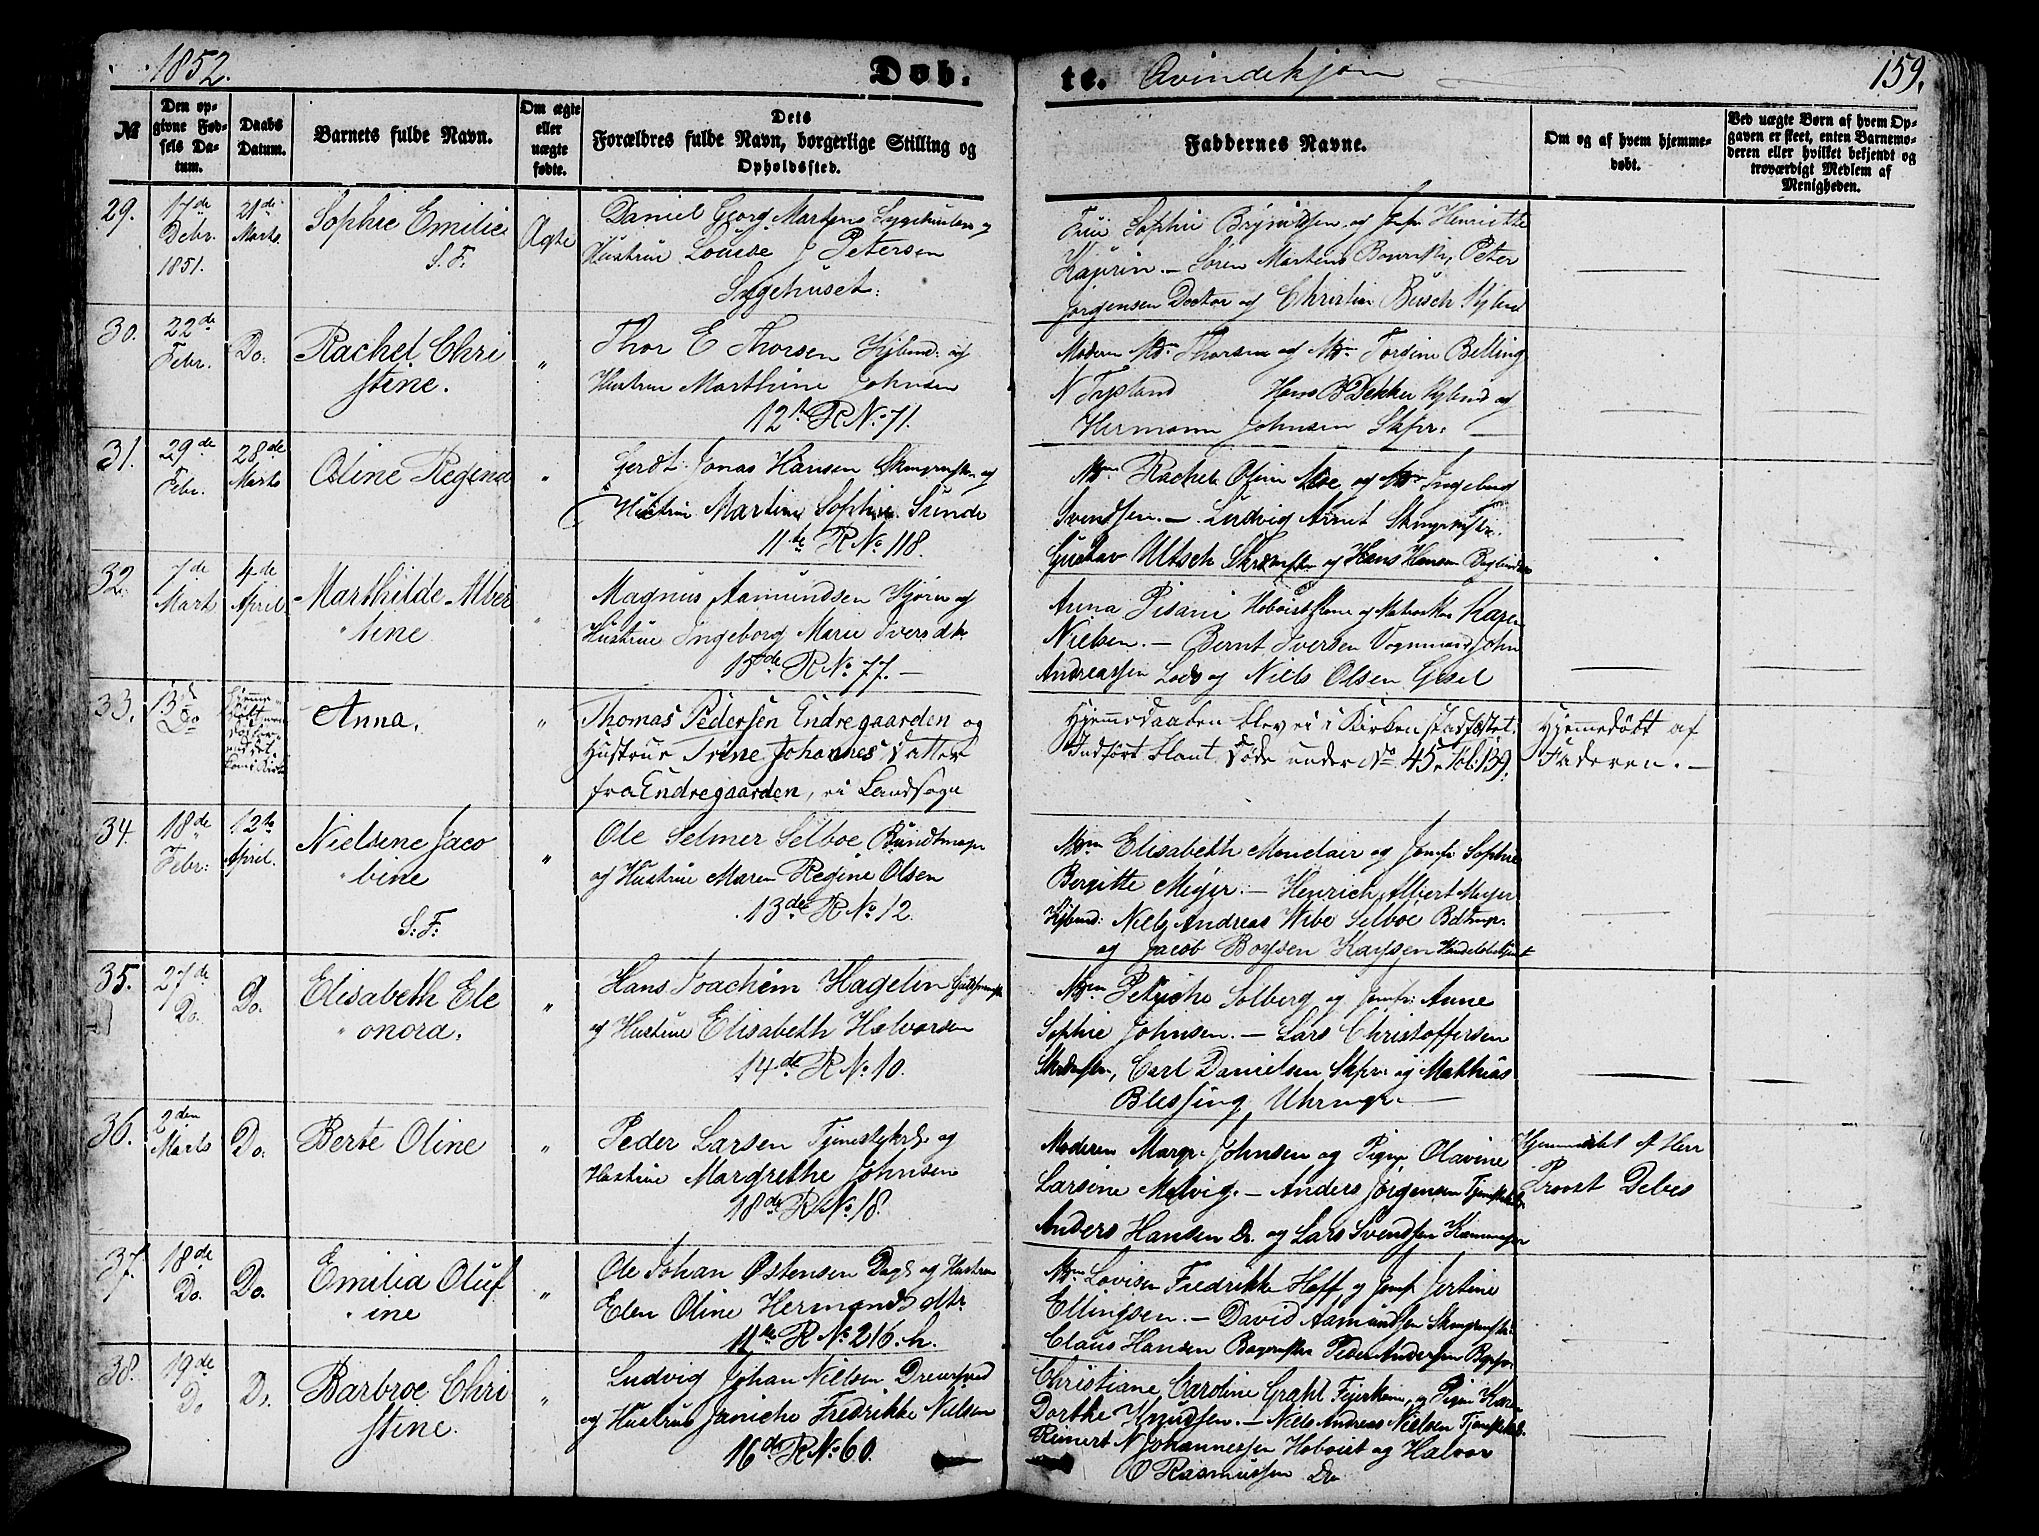 1852.
Døb-
te. Qvindekjøn
159.
№
Den op-
givne Fød-
sels Da-
tum.
Daabs
Datum.
Barnets fulde Navn.
Om ægte
eller
uægte
fødte.
Dets
Forældres fulde Navn, borgerlige Stilling og
Opholdssted.
Faddernes Navne.
Om og af hvem hjemme-
døbt.
Ved uægte Børn af hvem Op-
gaven er skeet, enten Barnemo-
deren eller hvilket bekjendt og
troværdigt Medlem af
Menigheden.
29.
17de
Debr.
1851.
21de
Marts.
Sophie Emilie
S. F.
Ægte
Daniel Georg Martens og
Hustrue Louise J Petersen
Sygehuset:
Frü Sophie og Jomfr Henriette
Kaurin. – Sören Martens Peter
Jörgensen Doctor og Christian Büsch Kjbmd
30.
22de
Febr.
Do:
Rachel Chri
stine.
"
Thor E Thorsen Kjbmd: og
Hustrue Marthine Johnsen
12te R No. 71.
Moderen Mdm Thorsen og Mdm Torgine Belling
N Tryland Hans B Dekker Kjbmd og
Hermann Johnsen Skpr: –
31.
29de
Febr.
28de
Marts
Oline Regina
"
Gerdt Jonas Hansen og
Hustrue Martine Sophie Sunde
11te R No. 118.
Mdm Rachel Oline Moe og Mdm Ingeborg
Svendsen. – Ludvig
Gustav Utsch og Hans Hansen
32.
7de
Mart
4de
April.
Marthilde Alber
tine
"
Magnus Aamundsen og
Hustrue Ingeborg Marie Iversdtr
15de R No. 77. –
Anna Pisani og Karen
Nielsen. – Bernt Iversen Vognmand, John
Andreassen Lods og Niels Olsen Gjesel
33.
13de
Do
Anna.
"
Thomas Pedersen Endregaarden og
Hustrue Irene Johannes Datter
fra Endregaarden, ei Landsogn
Hjemedaaben blev ei i Kirken stadfæstet.
Indført blant Døde under No 45. Fol: 139.
Hjemedöbt af
Faderen. –
34.
18de
Febr:
12te
April.
Nielsine Jaco
bine
S. F.
"
Ole Selmer Selboe Bundtmager
og Hustrue Maren Regine Olsen
13de R No. 12.
Mdm Elisabeth Mondair og Jomfr Sophie
Bergitte Meyer: – Henrich Albert Meyer
Kjbmd: Niels Andreas Wibe Selboe
og Jacob Boysen Kaysen
35.
27de
Do.
Do.
Elisabeth Ele
onora.
"
Hans Joachim Hagelin
og Hustrue Elisabeth Halvorsen
14de R No. 10.
Mdm Solberg og Jomfr: Anne
Sophie Johnsen. – Lars Christoffersen
Carl Danielsen Skpr: og Mathias
Blessing –
36.
2den
Marts
Do:
Berte Oline
"
Peder Larsen og
Hustrue Margrethe Johnsen
18de R No. 18.
Moderen Margr: Johnsen og Pigen Olavine
Larsine Melvig. – Anders Jörgensen
Anders Hansen Do. og Lars Svendsen
Hjemmedöbt af Herr
Provst Debes
37.
18de
Do.
Do.
Emilia Oluf
ine
"
Ole Johan Østensen og Hustrue
Elen Oline Hermands dtr
11te R No. 216. h.
Mdm Lovise Fredrikke Hoff og Jomf Jertine
Ellingsen. – David Aamundsen
Claus Hansen Peder Andersen
38.
19de
Do
Do.
Barbroe Chri
stine.
"
Ludvig Johan Nielsen Dreiersvend
og Hustrue Janiche Fredrikke Nielsen
16de R No. 60.
Christiane Caroline Grahl og Pigen
Dorthe Knudsen. – Niels Andreas Nielsen
Reinert N Johannessen Hoboist og Halvor
O Rasmussen Do